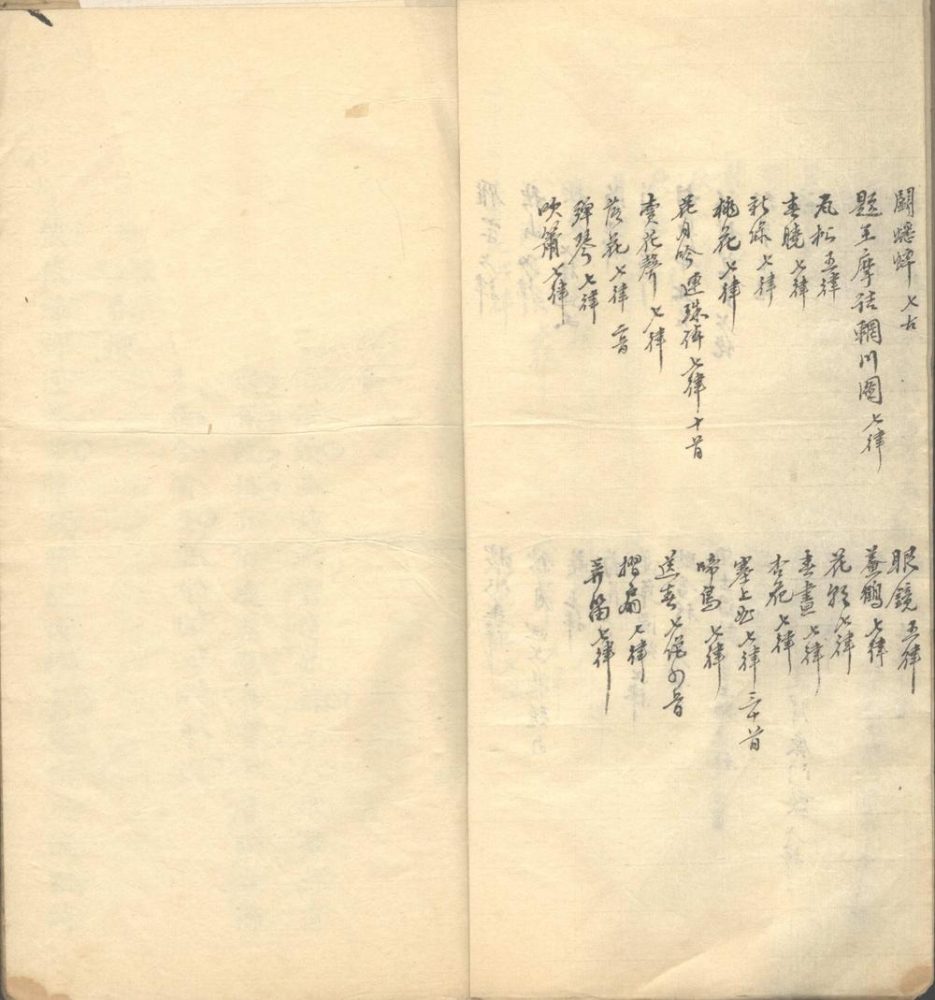 鬭蟋蟀 七古
題王摩詰輞川圖 七律
瓦松 五律
春曉 七律
新綠 七律
桃花 七律
花月吟 連珠體 七律 十首
賣花聲 七律
落花 七律 二首
彈琴 七律
吹簫 七律
眼鏡 五律
養鶴 七律
花影 七律
春晝 七律
杏花 七律
塞上 七律 三十首
啼鳥 七律
送春 七絕 首
摺扇 七律
弄笛 七律